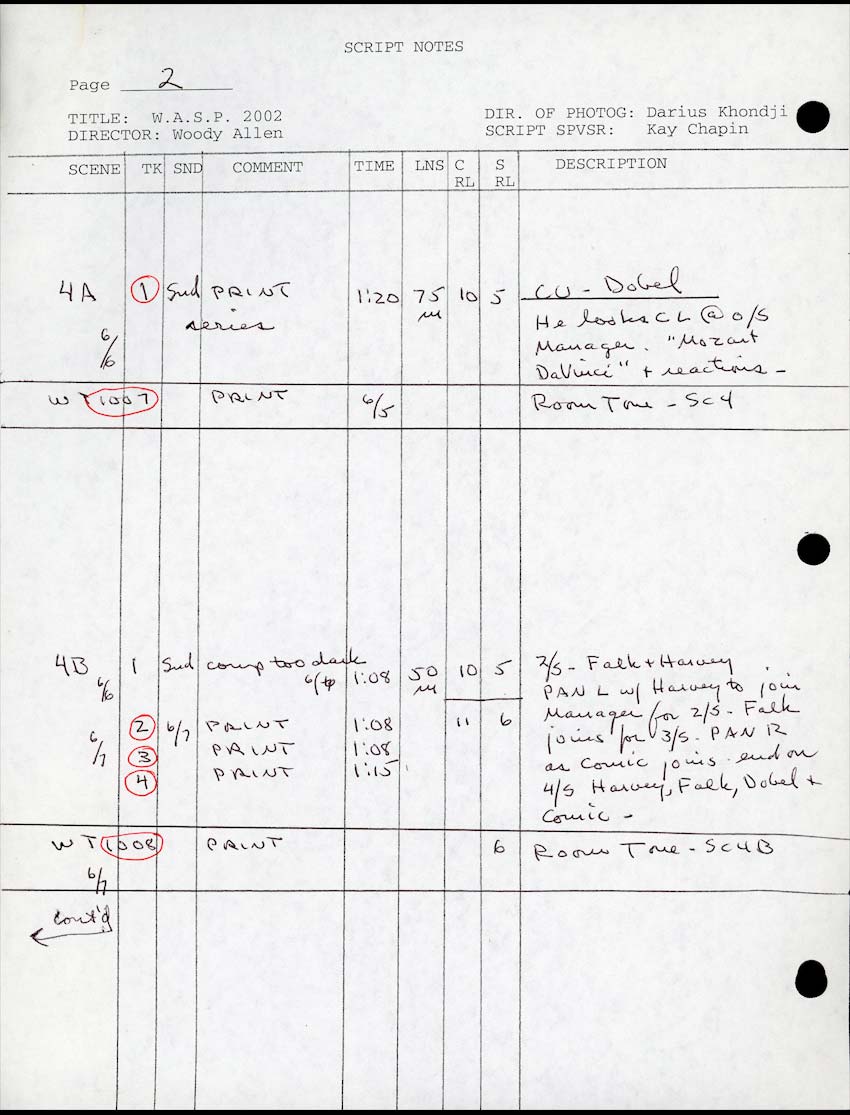 SCRIPT NOTES
Page 2
TITLE: W.A.S.P. 2002
DIR. OF PHOTOG: Darius Khondji
DIRECTOR: Woody Allen
SCRIPT SPVSR: Kay Chapin
SCENE TK SND COMMENT TIME LNS C RL S RL DESCRIPTION
4A 1 Snd PRINT 1:20 75 10 5 CU - Dobel
series
He looks CL @ o/s
Manager. "Mozart
6/6
DaVinci" + reactions -
WT1007 PRINT 6/5 Room Tone - Sc4
4B 1 Snd comp too dark 1:08 50 10 5 2/s - Falk + Harvey
6/6
PAN L w/ Harvey to join
2 6/7 PRINT 1:08 11 6 Manager for 2/s. Falk
6/7
3 PRINT 1:08 joins for 3/s. PAN R
4 PRINT 1:15 as Comic joins. end on
4/s Harvey, Falk, Dobel +
Comic -
WT1008 PRINT 6 Room Tone - Sc4B
6/7
cont'd